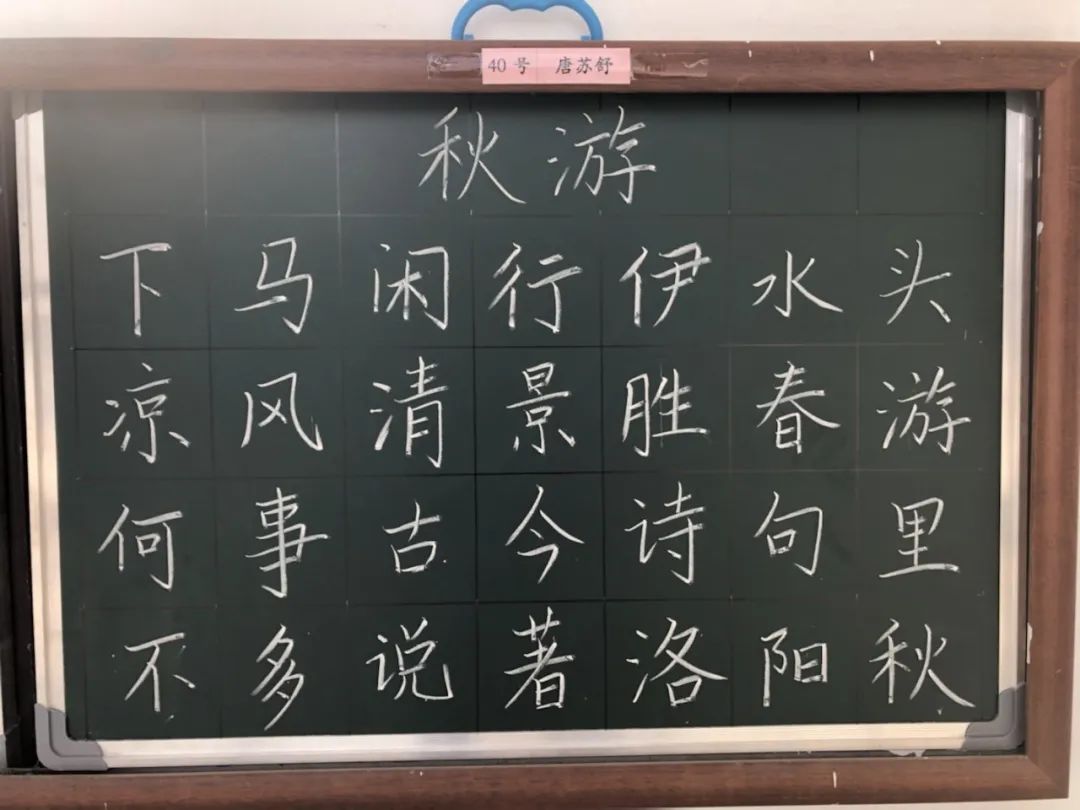 40号 唐苏舒
秋游
下马闲行伊水头
凉风清景胜春游
何事古今诗句里
不多说著洛阳秋